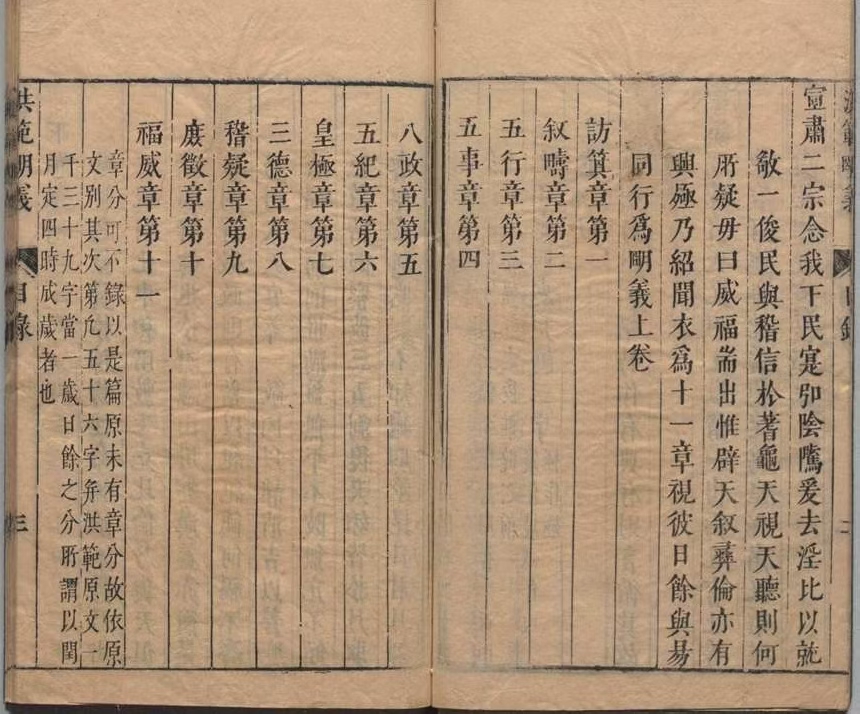 宣肅二宗念我下民寔卽陰隲爰去淫比以就
敬一俊民與稽信於蓍龜天視天聽則何
所疑毋曰威福耑出惟辟天叙彞倫亦有
興極乃紹聞衣爲十一章視彼日餘與易
同行爲明義上卷
訪箕章第一
叙疇章第二
五行章第三
五事章第四
八政章第五
五紀章第六
皇極章第七
三德章第八
稽疑章第九
庶徵章第十
福威章第十一
章分可不錄以是篇原未有章分故依原
文別其次第凢五十六字幷洪範原文一
千三十九字當一歲日餘之分所謂以閏
月定四時成歲者也
洪範明義
目錄
三